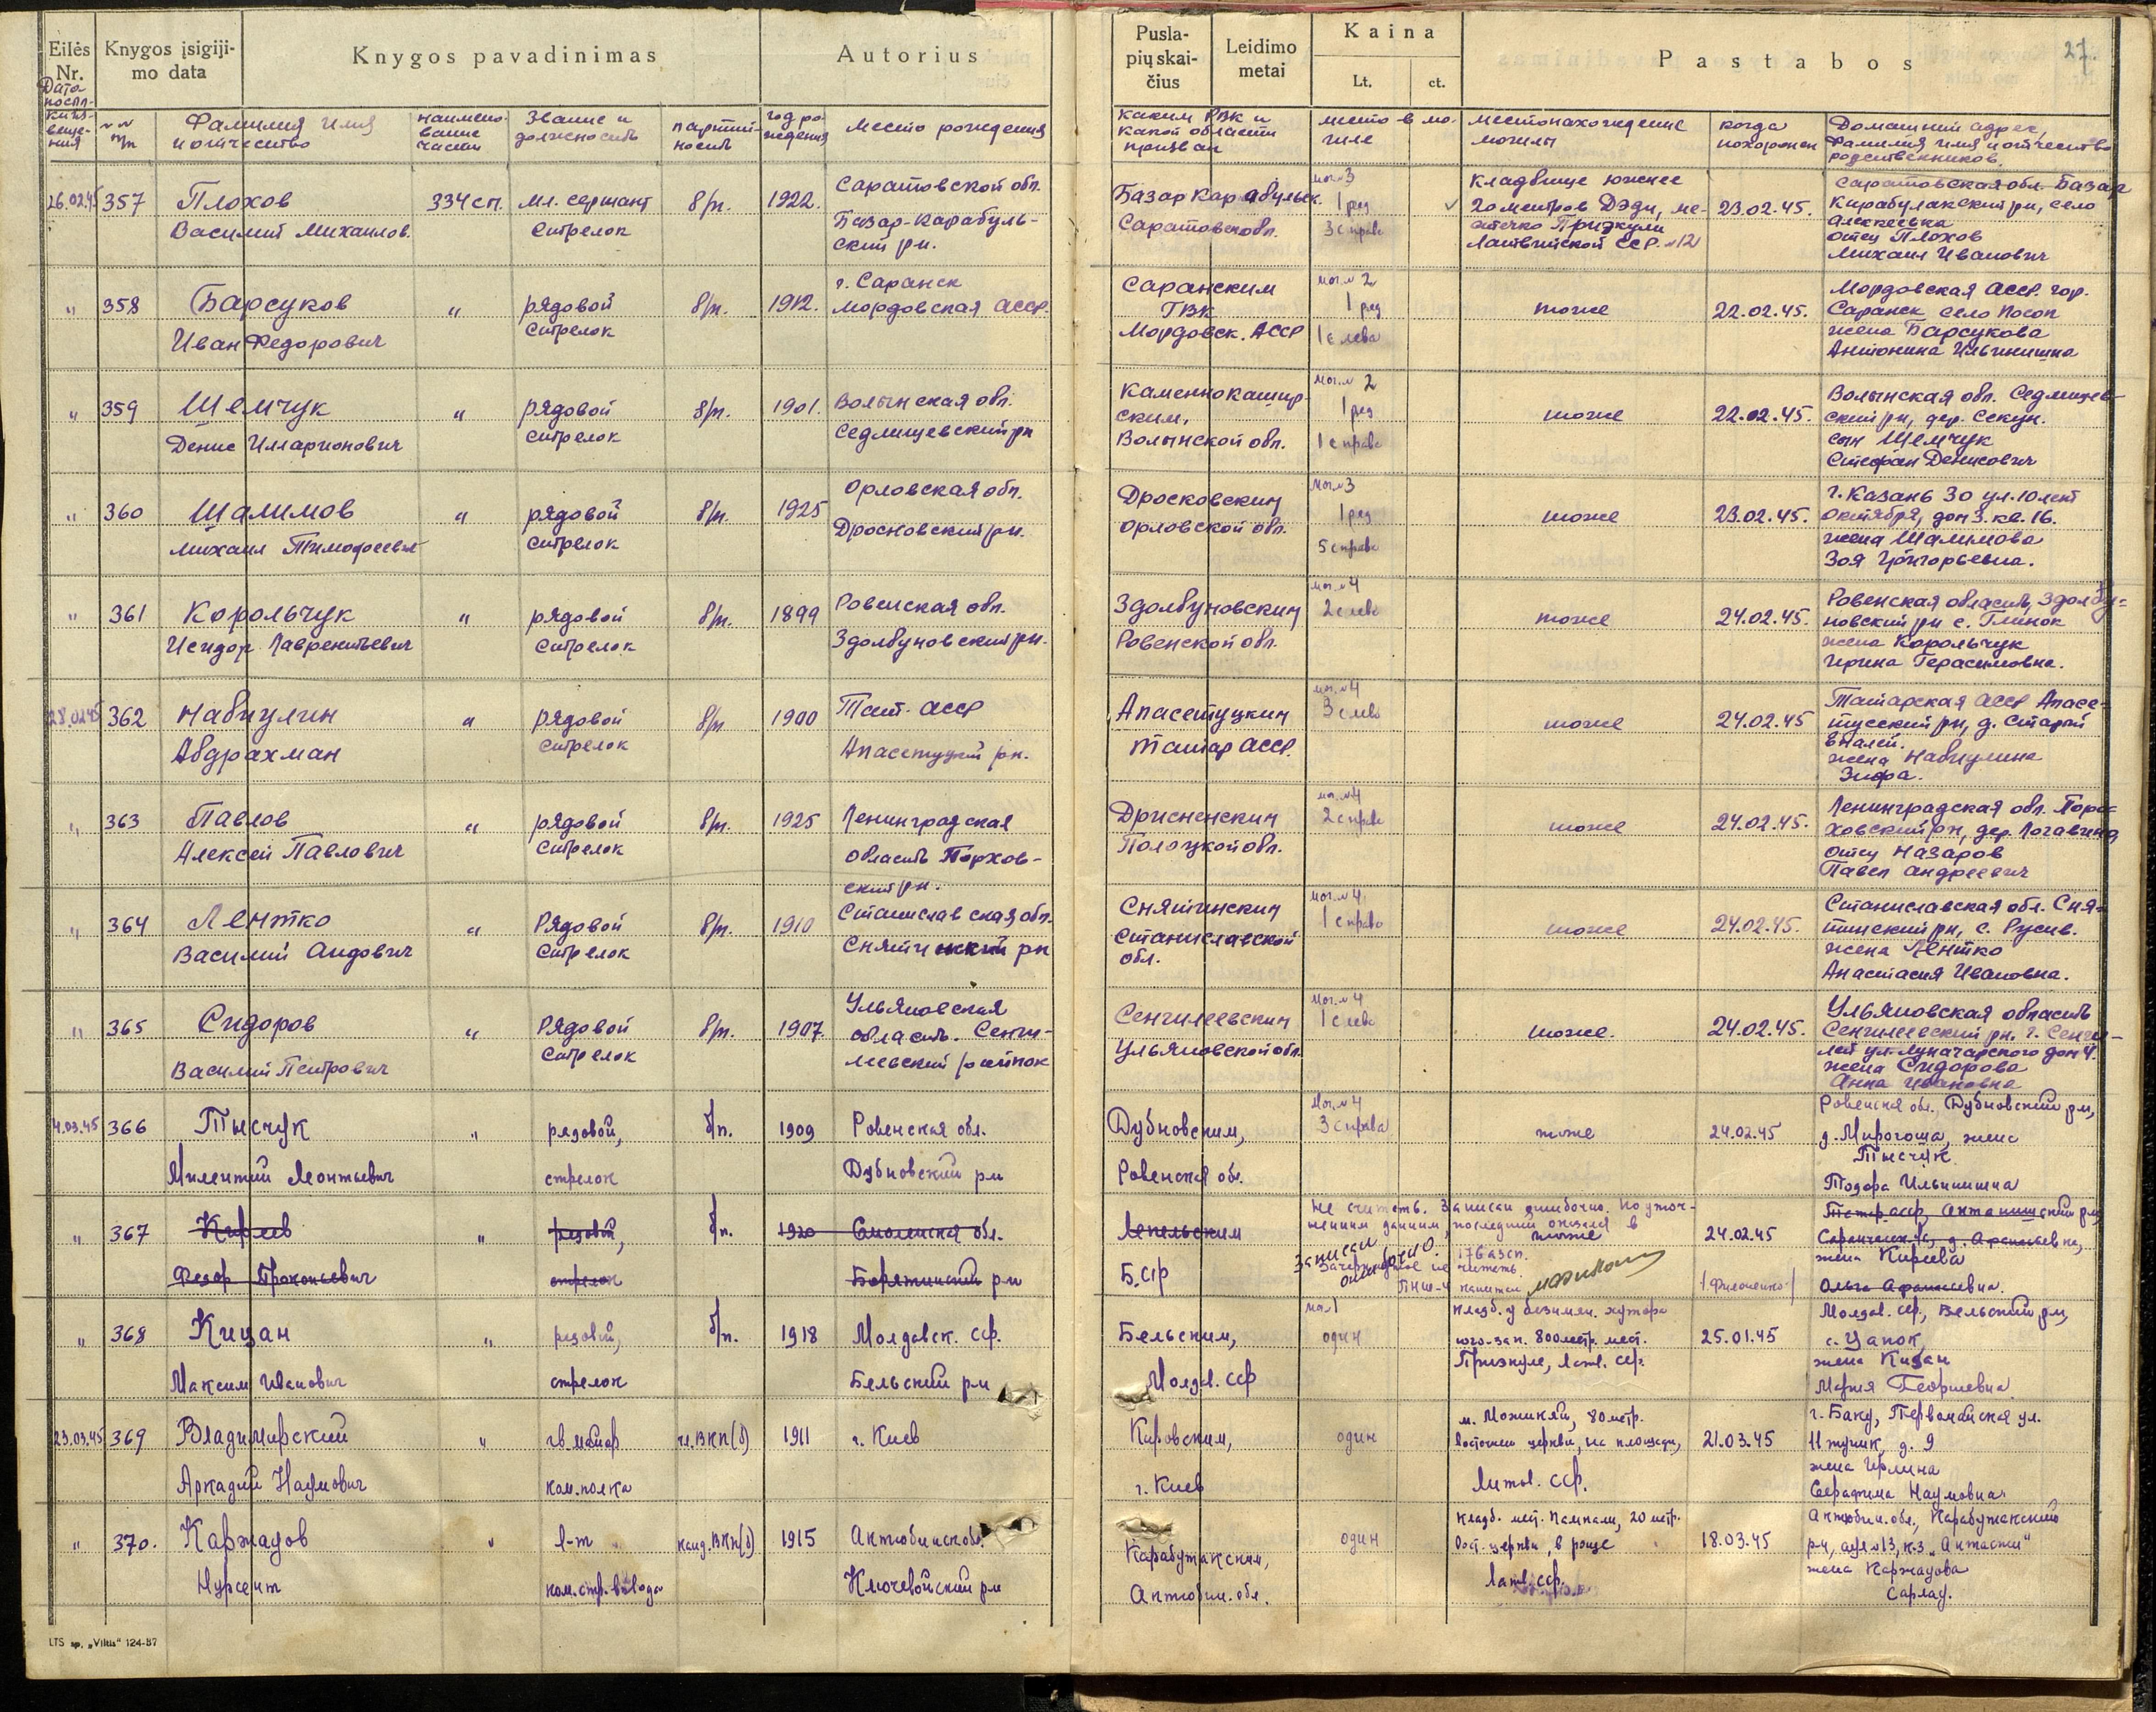 Eilės Nr.
Knygos įsigijimo data
Knygos pavadinimas
Autorius
Puslapių skaičius
Leidimo metai
Kaina
Lt.
ct.
Pastabos
27.
Дата
Фамилия имя и отчество
наименование части
Звание и должность
партийность
год рождения
Место рождения
каким РВК и какой области призван
место в могиле
местонахождение могилы
когда похоронен
Домашний адрес, Фамилия имя и отчество родственников.
26.02.45 357 Плохов 334 сп. мл. сержант б/п. 1922. Саратовской обл.
Василий Михайлов. Стрелок Базар-Карабульский рн.
Базар Карабульск. Саратовск обл.
мог. 3 1 ряд 3 справа
Кладбище южнее 20 метров Дэди, местечко Призкули Латвийской ССР. №12
23.02.45.
Саратовская обл. Базар Карабулакский рн, село Алексеевка
отец Плохов
Михаил Иванович
" 358 Барсуков " рядовой б/п. 1912. г. Саранск
Иван Федорович стрелок Мордовская АССР.
Саранским ГВК Мордовск. АССР
мог. № 2 1 ряд 1 слева
тоже 22.02.45.
Мордовская АССР. гор. Саранск село Посоп
жена Барсукова
Антонина Ильинишна
" 359 Шемчук " рядовой б/п. 1901. Волынская обл.
Денис Илларионович стрелок Седлищевский рн
Каменнокаширским, Волынской обл.
мог. № 2 1 ряд 1 справа
тоже 22.02.45.
Волынская обл. Седлищевский рн, дер. Секун.
сын Шемчук
Стефан Денисович
" 360 Шалимов " рядовой б/п. 1925 Орловская обл.
Михаил Тимофеевич стрелок Дросковский рн.
Дросковским Орловской обл.
мог. № 3 1 ряд 5 справа
тоже 23.02.45.
г. Казань 30 ул. 10 лет Октября, дом 3. кв. 16.
жена Шалимова
Зоя Григорьевна.
" 361 Корольчук " рядовой б/п. 1899 Ровенская обл.
Исидор Лаврентьевич стрелок Здолбуновский рн.
Здолбуновским Ровенской обл.
мог. № 4 2 слева
тоже 24.02.45.
Ровенская область, Здолбуновский рн с. Глинок
жена Корольчук
Ирина Герасимовна.
28.02.45 362 Набиулин " рядовой б/п 1900 Тат. АССР
Абдрахман стрелок Апасетуцкий рн.
Апасетуцким Татар АССР.
мог. № 4 3 слева
тоже 24.02.45
Татарская АССР Апасетусский рн, д. Старый
жена Набиулина
Зифа.
" 363 Павлов " рядовой б/п. 1925 Ленинградская
Алексей Павлович стрелок область Порховский рн.
Дрисненским Полоцкой обл.
мог. № 4 2 справа
тоже 24.02.45.
Ленинградская обл. Порховский рн, дер. Логавино
отец Назаров
Павел Андреевич
" 364 Лентко " Рядовой б/п. 1910 Станиславская обл.
Василий стрелок Снятинский рн
Снятинским Станиславской обл.
мог. № 4 1 справа
тоже 24.02.45.
Станиславская обл. Снятинский рн, с. Русив.
жена Лентко
Анастасия Ивановна.
" 365 Сидоров " Рядовой б/п. 1907. Ульяновская
Василий Петрович стрелок область. Сенгилеевский районок
Сенгилеевским Ульяновской обл.
мог. № 4 1 слева
тоже. 24.02.45.
Ульяновская область Сенгилеевский рн. г. Сенгилей ул. Луначарского дом 4.
жена Сидорова
Анна Ивановна
4.03.45 366 Тысчук " рядовой, б/п. 1909 Ровенская обл.
Милентий Леонтьевич стрелок Дубновский рн
Дубновским, Ровенская обл.
мог. № 4 3 справа
тоже 24.02.45
Ровенская обл., Дубновский рн, д. Мирогоща, жена
Тысчук
Тодора Ильинишна
" 367 Киреев " рядовой, б/п. 1920 Смоленская обл.
Федор Прокопьевич стрелок Борятинский рн
Лепельским БССР
Не считать. Записан ошибочно. По уточненным данным, последний оказался в
тоже
Записан ошибочно.
Зачеркнутое не читать.
ПНШ-4 капитан
/Филоненко/
24.02.45
жена Киреева
Ольга Афанасьевна.
" 368 Кицан " рядовой, б/п. 1918 Молдавск. ССР.
Максим Иванович стрелок Бельский рн
Бельским, Молдав. ССР
мог. 1 один
кладб. у безимен. хутора юго-зап. 800 метр. мест. Призкуле, Латв. ССР.
25.01.45
Молдав. ССР, Бельский рн, с. Цапок,
жена Кицан
Мария Георгиевна.
23.03.45 369 Владимирский " гв. майор чл. ВКП(б) 1911 г. Киев
Аркадий Наумович ком. полка
Кировским, г. Киев
один
м. Можикяй, 80 метр. восточнее церкви, на площади, Литов. ССР.
21.03.45
г. Баку, Первомайская ул. 11 тупик, д. 9
жена Ирлина
Серафима Наумовна
" 370. Каржауов " л-т канд. ВКП(б) 1915 Актюбинск обл.
Нурсеит ком. стр. взвода Ключевойский рн
Карабутакским, Актюбин. обл.
один
кладб. мест. Пампали, 20 метр. вост. церкви, в роще Латв. ССР.
18.03.45
Актюбин. обл., Карабутакский рн, аул №13, к-з „Актасты"
жена Каржауова
Сарлау.
LTS sp. „Viltis" 124-37